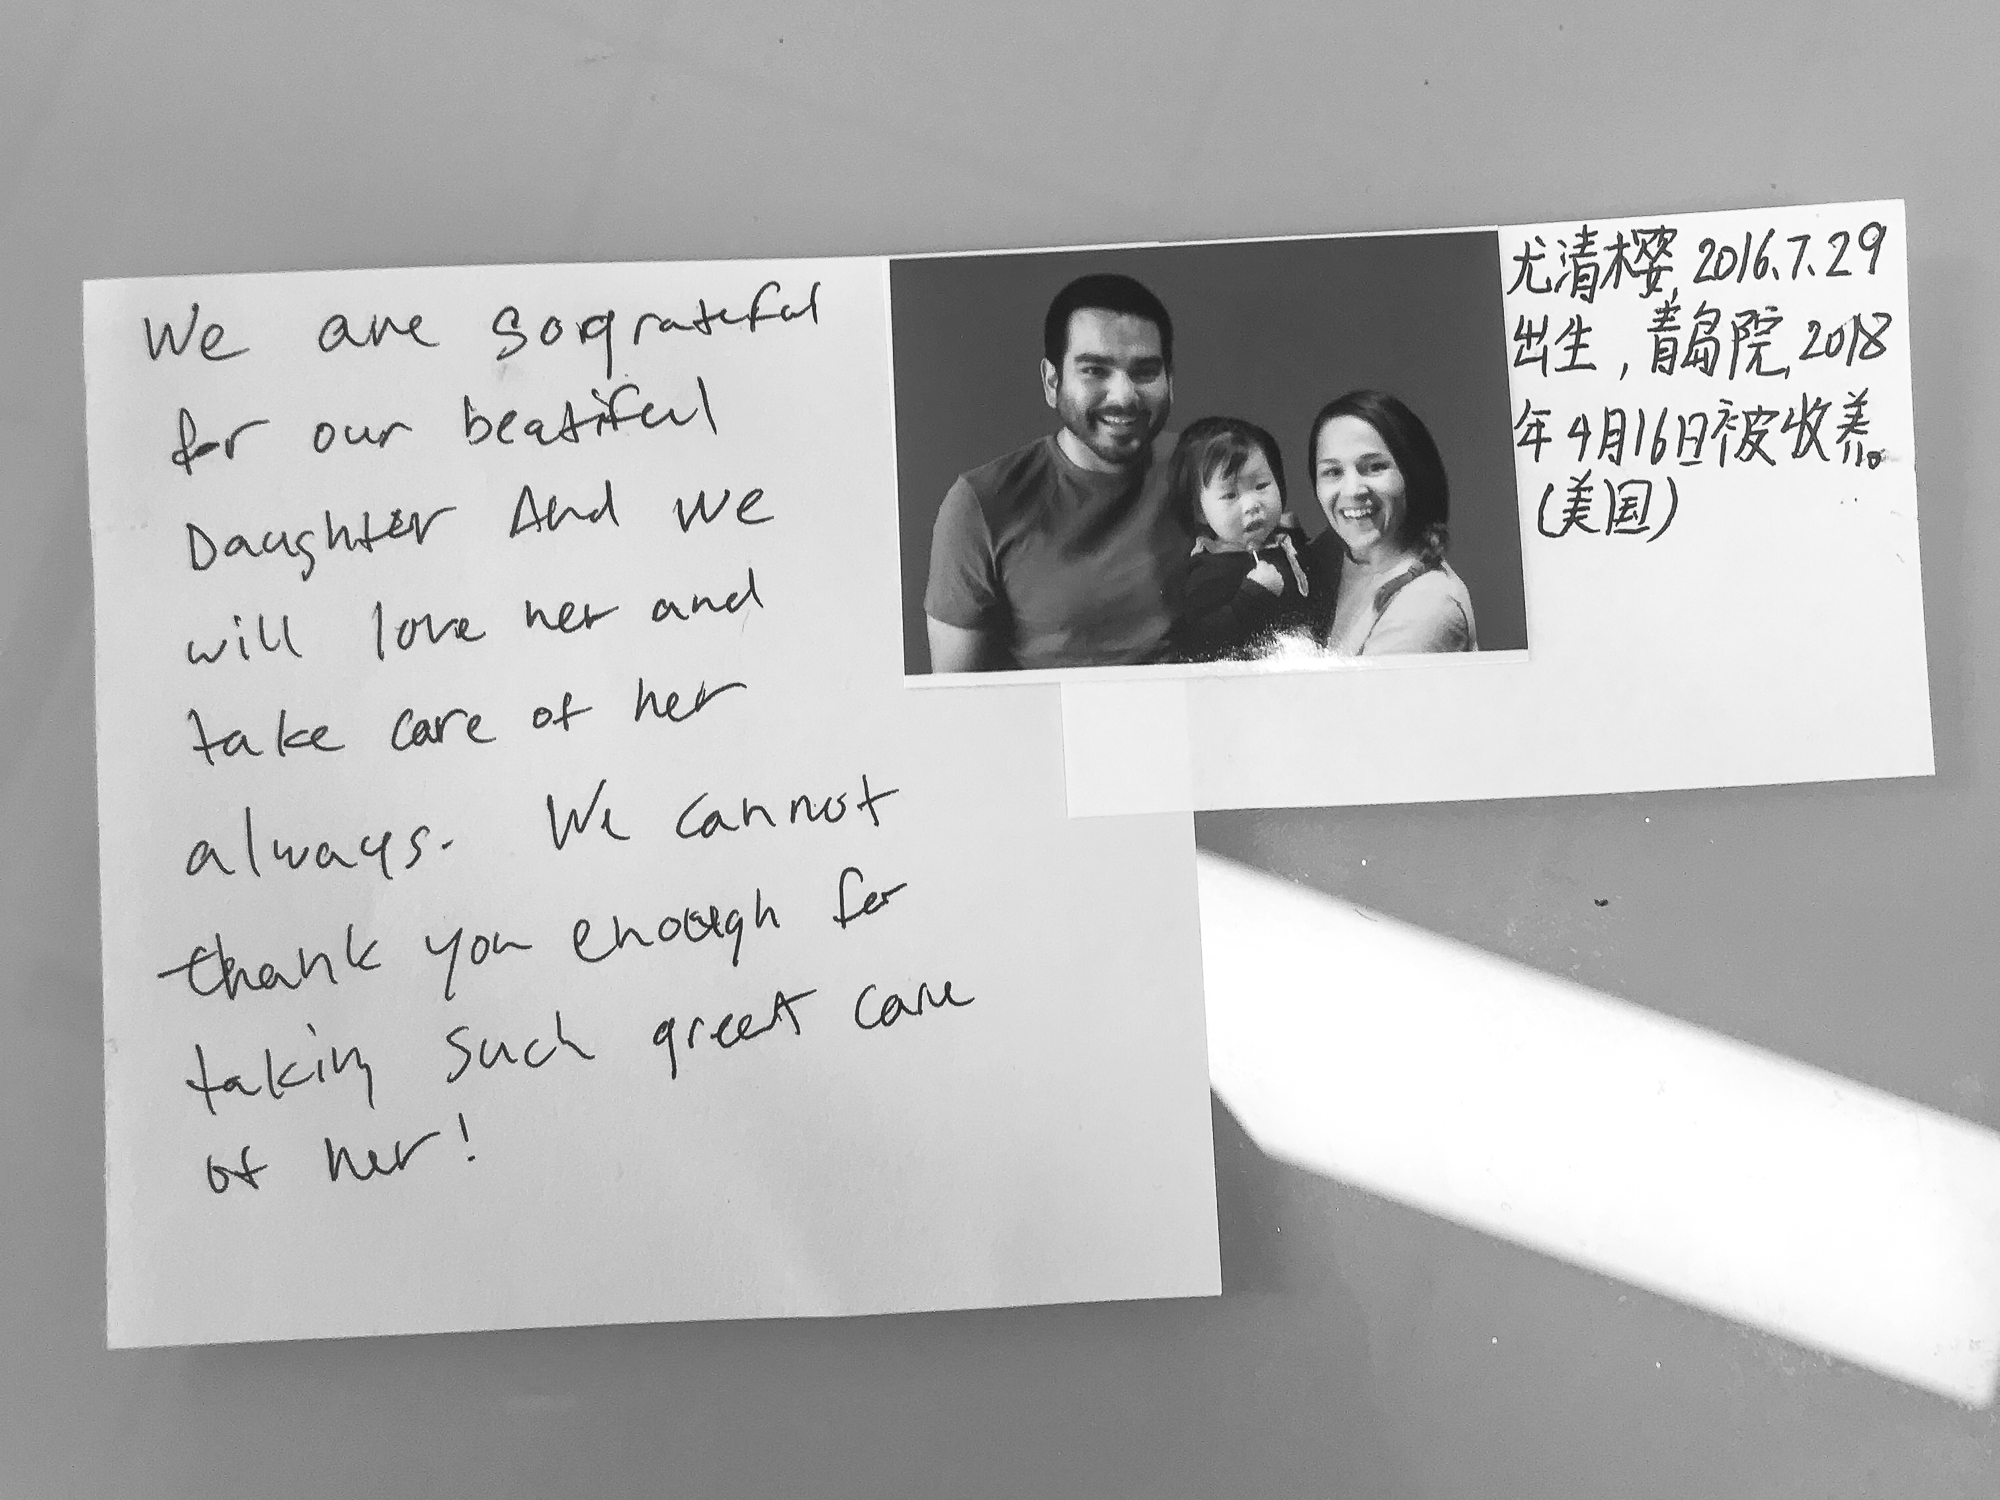 We are so grateful
for our beatiful
Daughter And we
will love her and
take care of her
always. We cannot
thank you enough for
taking such great care
of her!
尤清樱, 2016.7.29
出生，青岛院, 2018
年4月16日被收养。
（美国）